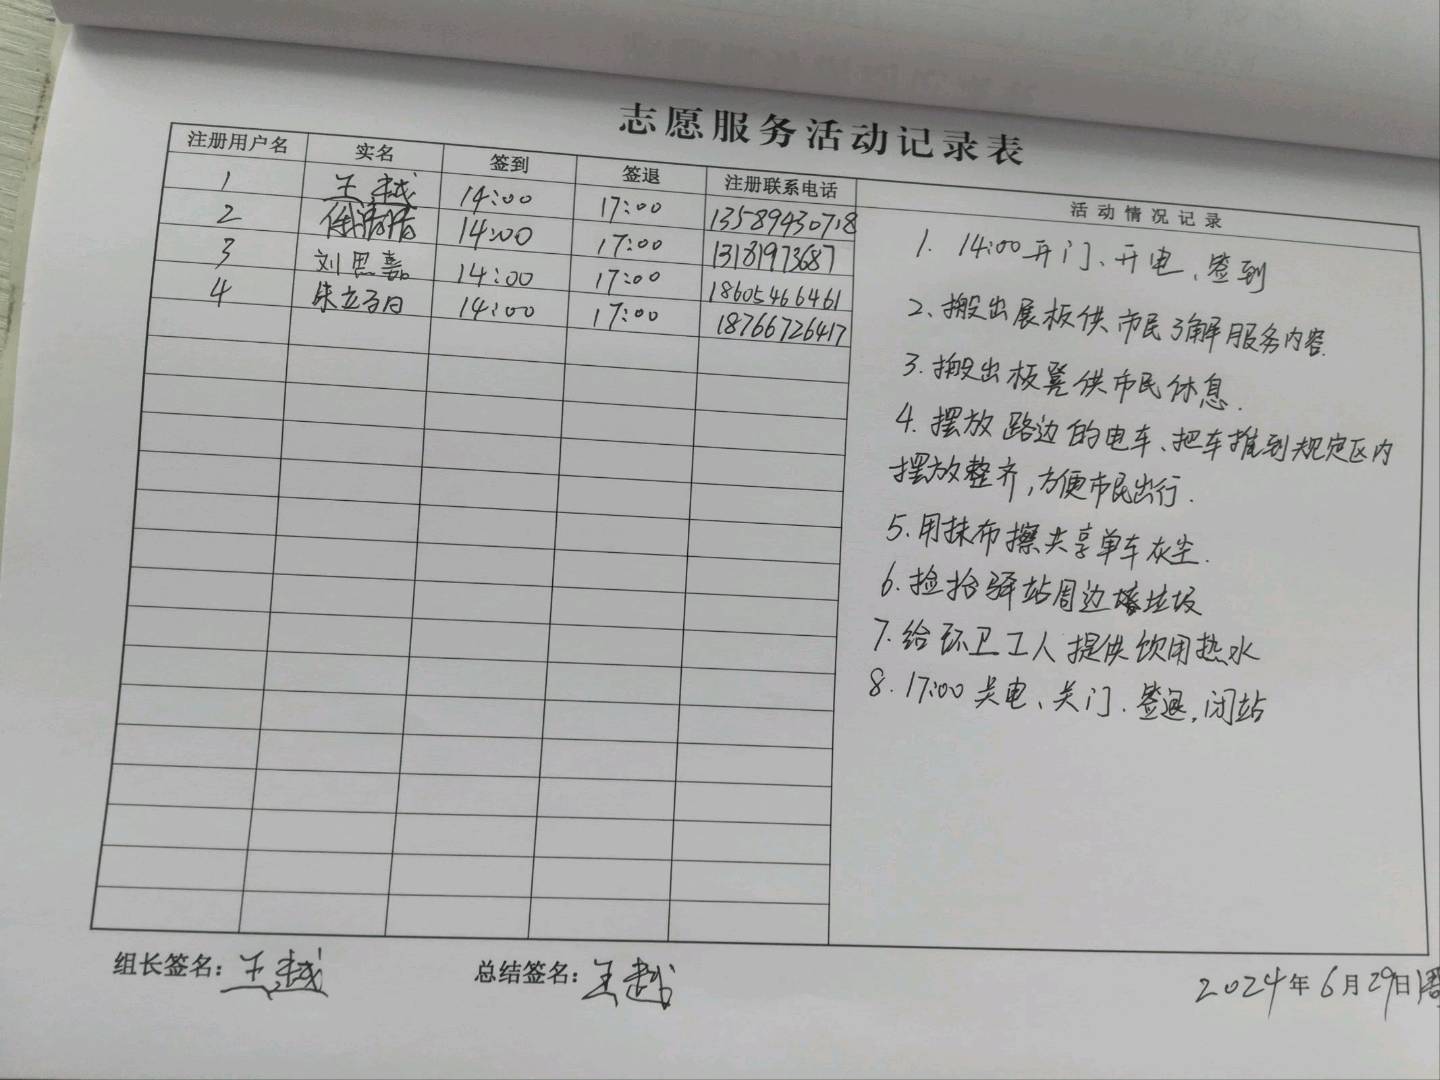 志愿服务活动记录表
注册用户名 实名 签到 签退 注册联系电话 活动情况记录
1 王越 14:00 17:00 13589430718
2 14:00 17:00 13181973687
3 刘思嘉 14:00 17:00 18605466461
4 朱立 14:00 17:00 18766726417
1. 14:00开门、开电、签到
2. 搬出展板供市民了解服务内容.
3. 搬出板凳供市民休息.
4. 摆放路边的电车、把车推到规定区内
摆放整齐,方便市民出行.
5. 用抹布擦共享单车灰尘.
6. 捡拾驿站周边垃圾
7. 给环卫工人提供饮用热水
8. 17:00关电、关门.签退,闭站
组长签名:王越 总结签名:王越
2024年6月29日周